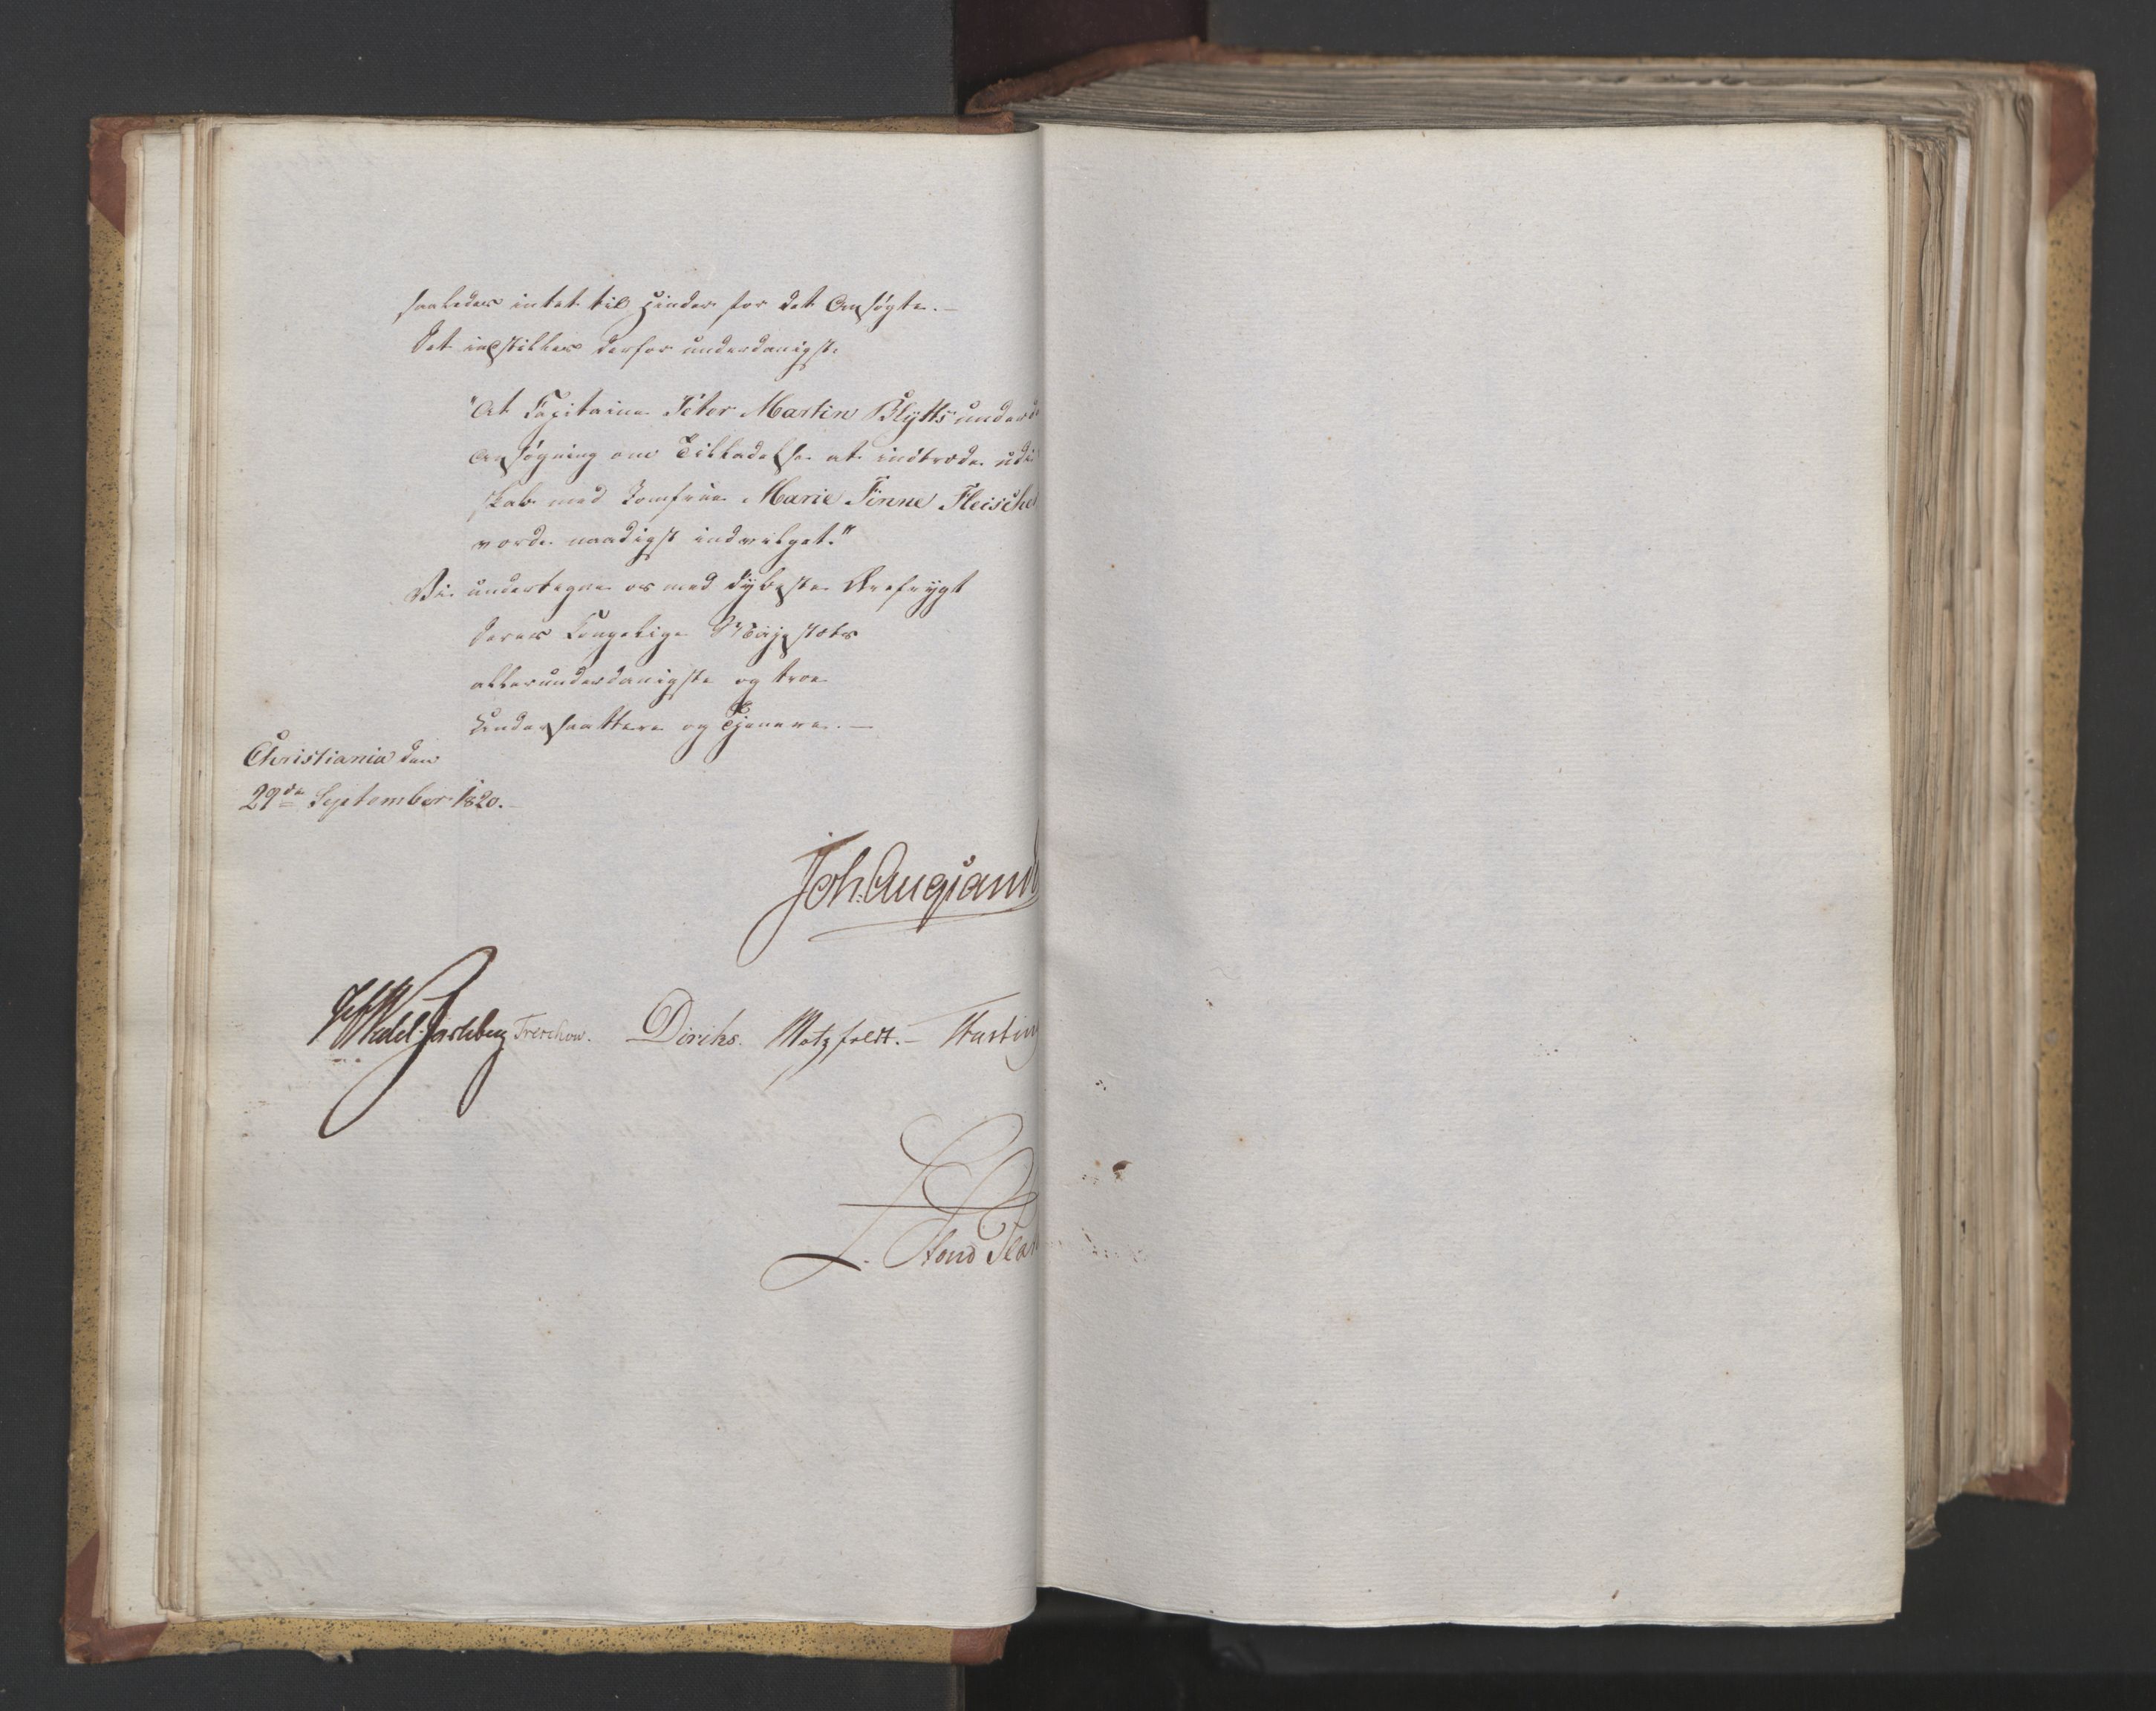 saaledes intet til Hinder for det Ansøgte.-
Det indstilles derfor underdanigst:
"At Capitaine Peter Martin Blytts under
Ansøgning om Tilladelse at indtræde udi
skab med Jomfrue Marie Finne Fleischer
vorde naadigst indvilget."
Vi undertegne os med dybeste Ærefrygt
Deres Kongelige Majestæts
allerunderdanigste og troe
Undersaattere og Tjenere.-
Christiania den
29de September 1820.-
Joh: Aug: Sand
Wedel Jarlsberg Treschow. Diriks. Motzfeldt.- Fasting
L.